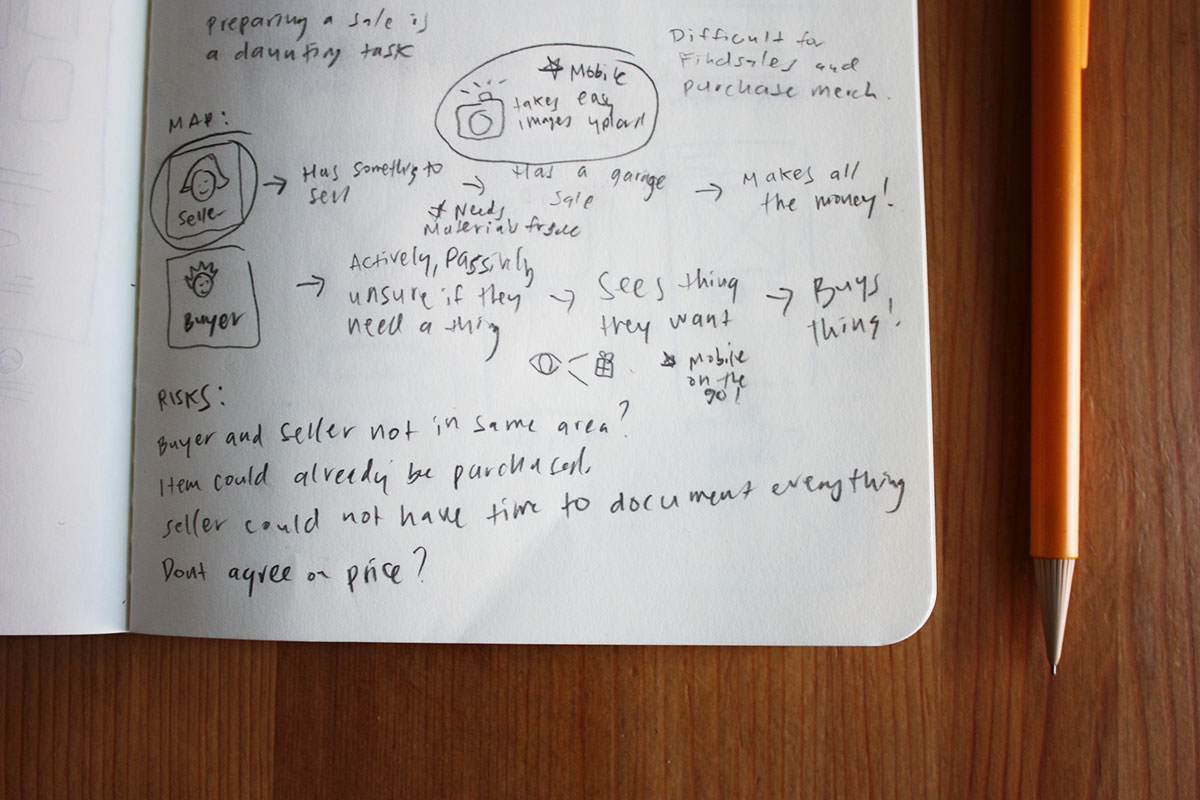 preparing a sale is
a daunting task
Difficult for
Findsales and
purchase merch.
★ Mobile
takes easy
images upload
MAP:
Seller
Has something to
sell
★ Needs
Materials
Has a garage
sale
Makes all
the money!
Buyer
Actively, Passively
unsure if they
need a thing
Sees thing
they want
★ Mobile
on the
go!
Buys
thing!
RISKS:
Buyer and Seller not in same area?
Item could already be purchased.
seller could not have time to document everything
Dont agree on price?